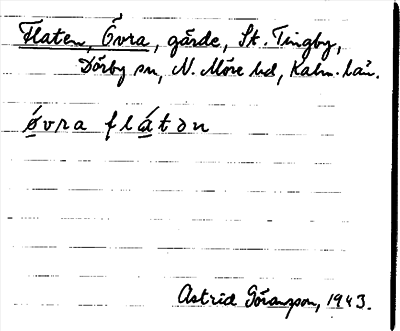 Flaten, Övra, gärde, St. Tingby,
Dörby sn, N. Möre hd, Kalm. län.
ǿvra flátən
Astrid Göransson, 1943.